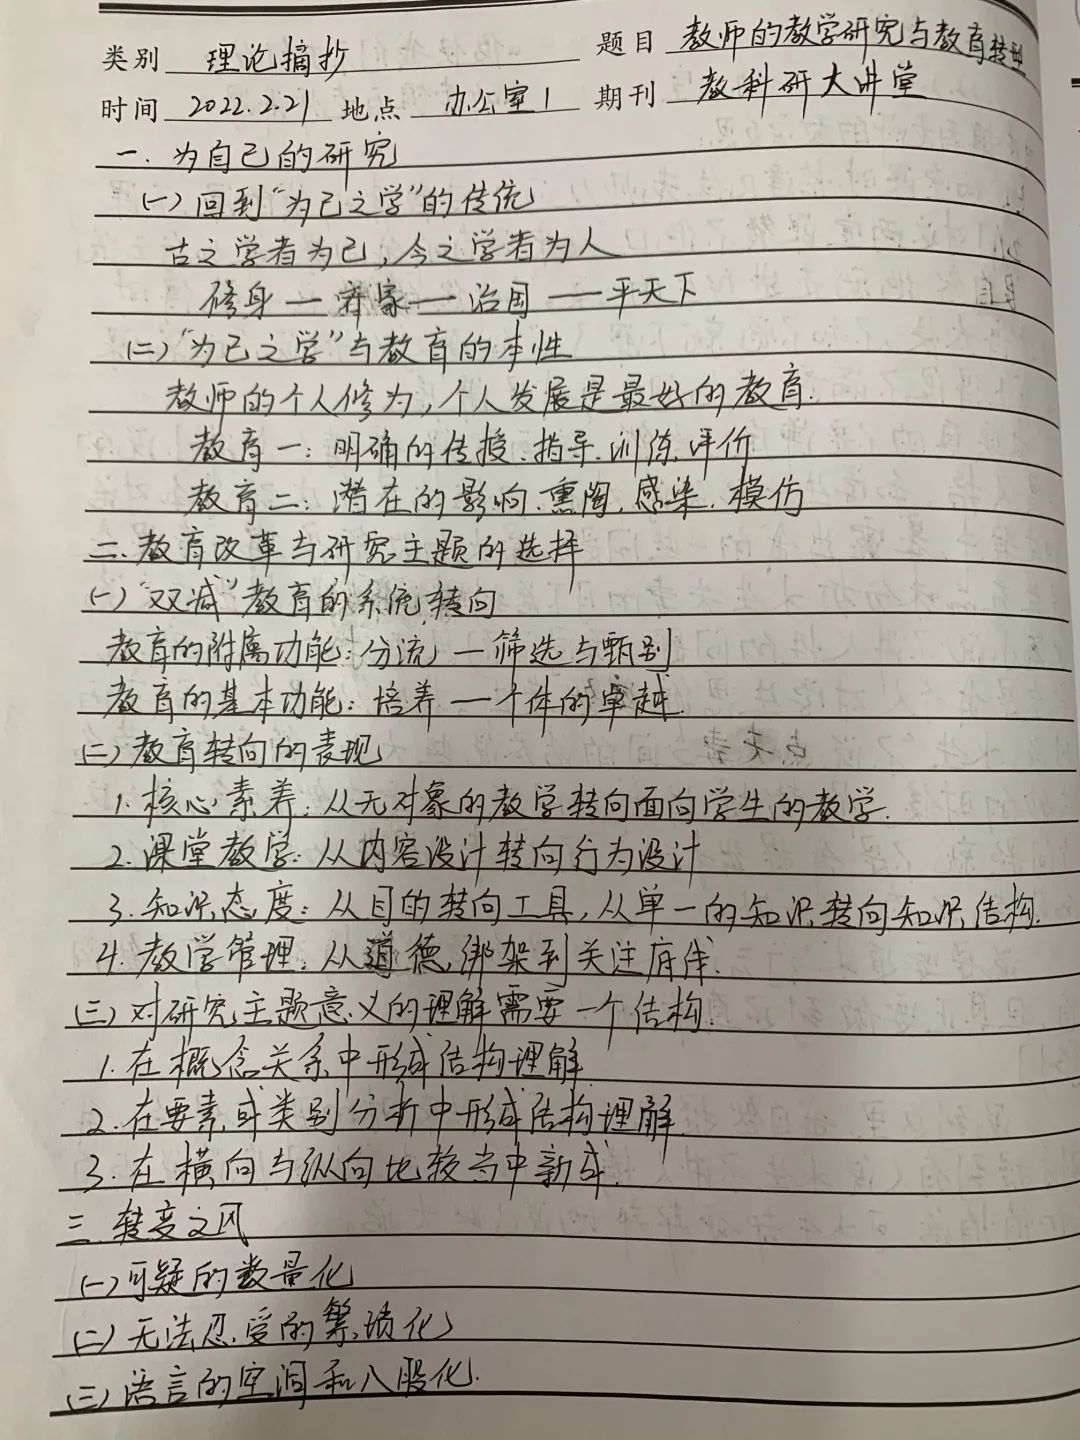 类别 理论摘抄 题目 教师的教学研究与教育转型
时间 2022.2.21 地点 办公室1 期刊 教科研大讲堂
一.为自己的研究
(一)回到“为己之学”的传统
古之学者为己,今之学者为人
修身—齐家—治国—平天下
(二)“为己之学”与教育的本性
教师的个人修为,个人发展是最好的教育.
教育一:明确的传授.指导.训练.评价
教育二:潜在的影响.熏陶.感染.模仿
二.教育改革与研究主题的选择
(一)“双减”教育的系统转向
教育的附属功能:分流—筛选与甄别
教育的基本功能:培养—个体的卓越.
(二)教育转向的表现
1.核心素养:从无对象的教学转向面向学生的教学.
2.课堂教学:从内容设计转向行为设计
3.知识态度:从目的转向工具,从单一的知识转向知识结构.
4.教学管理:从道德绑架到关注肩伴.
(三)对研究主题意义的理解需要一个结构.
1.在概念关系中形成结构理解
2.在要素或类别分析中形成结构理解.
3.在横向与纵向比较当中新成.
三.转变文风
(一)可疑的数量化
(二)无法忍受的繁琐化
(三)语言的空洞和八股化.